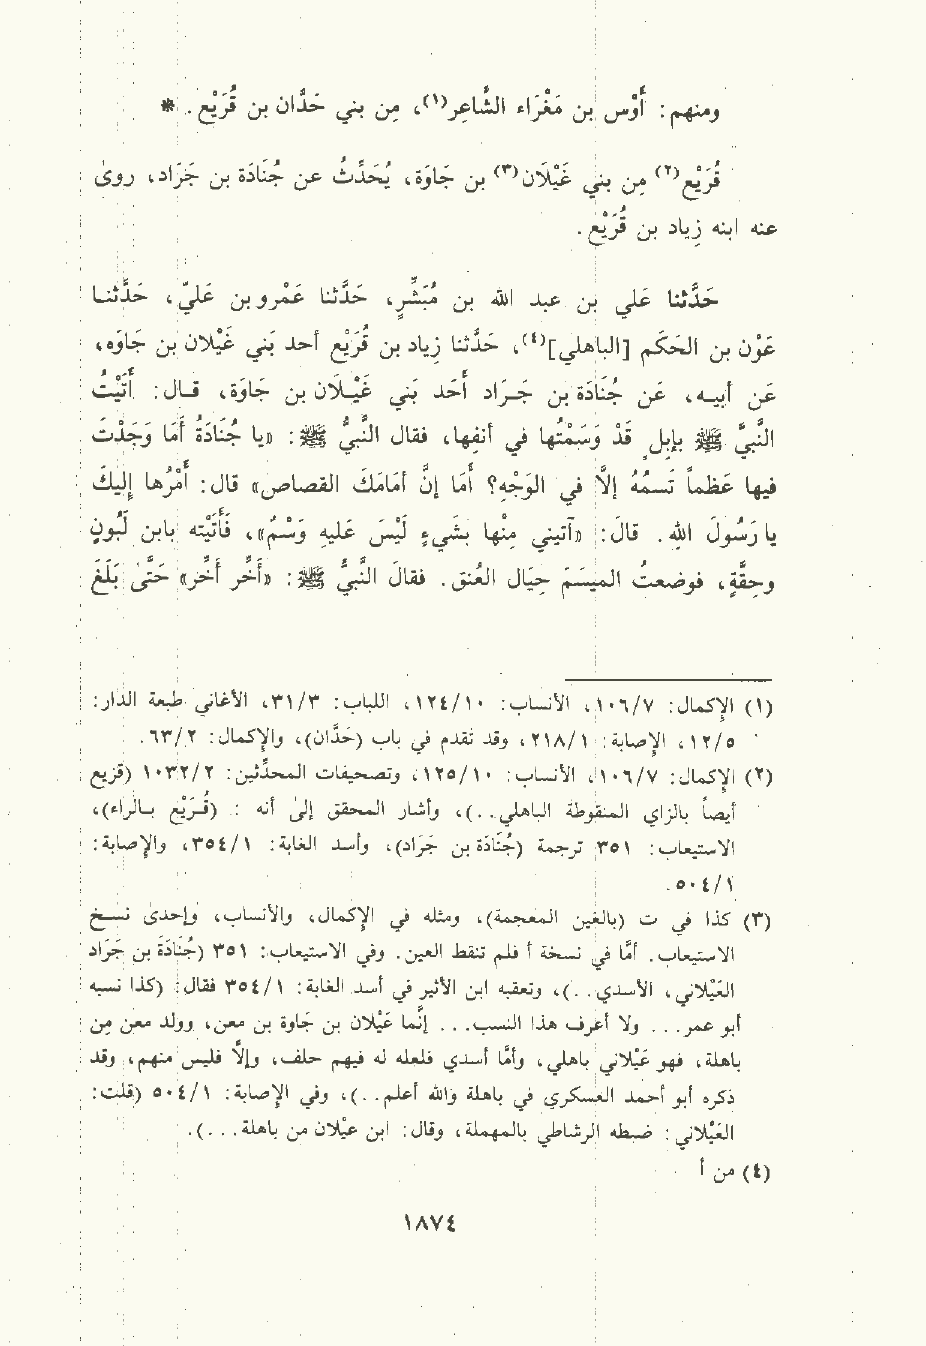 ومنهم: أَوْس بن مَغْرَاء الشَّاعِر(١)، مِن بني حَدَّان بن قُرَيْع. *
قُرَيْع(٢) مِن بني غَيْلَان(٣) بن جَاوَة، يُحَدِّثُ عن جُنَادَة بن جَرَاد، روىٰ
عنه ابنه زِياد بن قُرَيْع.
حَدَّثنا علي بن عبد الله بن مُبَشِّرٍ، حَدَّثنا عَمْرو بن عَليّ، حَدَّثنا
عَوْن بن الحَكَم [الباهلي](٤)، حَدَّثنا زِياد بن قُرَيْع أحد بَني غَيْلان بن جَاوَه،
عَن أبيه، عَن جُنَادَة بن جَرَاد أَحَد بَني غَيْلَان بن جَاوَة، قال: أَتَيْتُ
النَّبيَّ ﷺ بإبِلٍ قَدْ وَسَمْتُها في أنفِها، فقال النَّبيُّ ﷺ: «يا جُنَادَةُ أَمَا وَجَدْتَ
فيها عَظماً تَسمُهُ إلاَّ في الوَجْهِ؟ أَمَا إنَّ أمَامَكَ القصاص» قال: أَمْرُها إليكَ
يا رَسُولَ اللهِ. قالَ: «آتيني مِنْها بشَيءٍ لَيْسَ عَليهِ وَسْمٌ»، فَأَتَيْته بابن لَبُونٍ
وحِقَّةٍ، فوضعتُ الميسَمَ حِيَال العُنق. فقالَ النَّبيُّ ﷺ: «أَخِّر أَخِّر» حَتَّىٰ بَلَغَ
(١) الإكمال: ١٠٦/٧، الأنساب: ١٢٤/١٠، اللباب: ٣١/٣، الأغاني طبعة الدار:
١٢/٥، الإصابة: ٢١٨/١، وقد تقدم في باب (حَدَّان)، والإكمال: ٦٣/٢.
(٢) الإكمال: ١٠٦/٧، الأنساب: ١٢٥/١٠، وتصحيفات المحدِّثين: ١٠٣٢/٢ (قزيع
أيضاً بالزاي المنقوطة الباهلي..)، وأشار المحقق إلىٰ أنه : (قُرَيع بالراء)،
الاستيعاب: ٣٥١ ترجمة (جُنَادَة بن جَرَاد)، وأسد الغابة: ٣٥٤/١، والإصابة:
٥٠٤/١.
(٣) كذا في ت (بالغين المعجمة)، ومثله في الإكمال، والأنساب، وإحدى نسخ
الاستيعاب. أمَّا في نسخة أ فلم تنقط العين. وفي الاستيعاب: ٣٥١ (جُنَادَة بن جَرَاد
العَيْلاني، الأسدي..)، وتعقبه ابن الأثير في أسد الغابة: ٣٥٤/١ فقال: (كذا نسبه
أبو عمر... ولا أعرف هذا النسب... إنَّما عَيْلان بن جاوة بن معن، وولد معن مِن
باهلة، فهو عَيْلاني باهلي، وأمَّا أسدي فلعله له فيهم حلف، وإلاَّ فليس منهم، وقد
ذكره أبو أحمد العسكري في باهلة والله أعلم..)، وفي الإصابة: ٥٠٤/١ (قلت:
العَيْلاني: ضبطه الرشاطي بالمهملة، وقال: ابن عَيْلان من باهلة...).
(٤) من أ
١٨٧٤